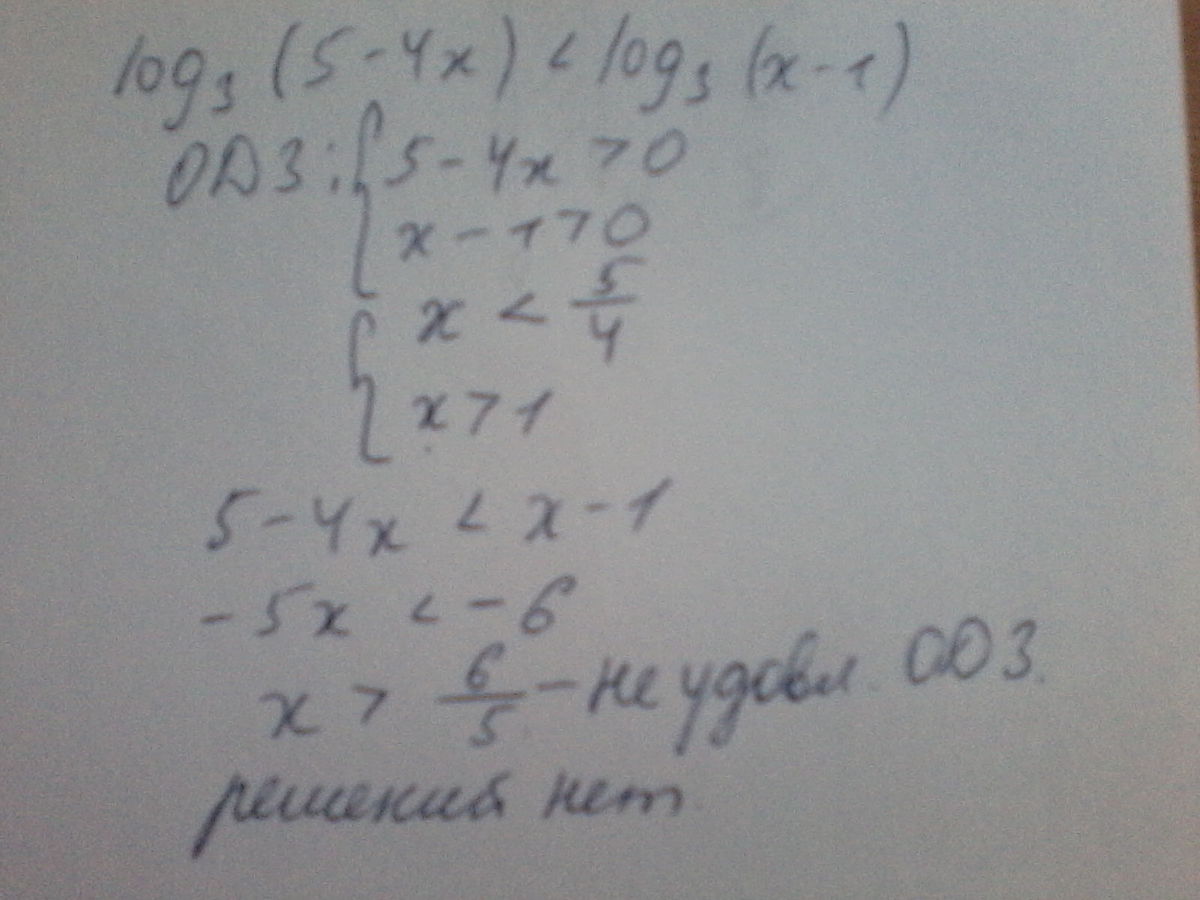 log₃ (5 - 4x) < log₃ (x - 1)
ОДЗ: { 5 - 4x > 0
x - 1 > 0
{ x < 5/4
x > 1
5 - 4x < x - 1
- 5x < - 6
x > 6/5 — не удовл. ОДЗ.
решений нет